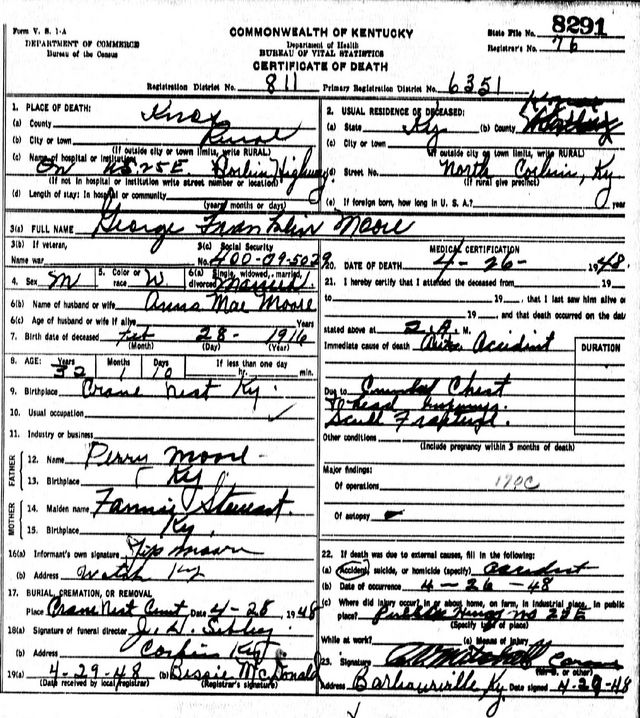 Form V. S. 1-A
DEPARTMENT OF COMMERCE
Bureau of the Census
COMMONWEALTH OF KENTUCKY
Department of Health
BUREAU OF VITAL STATISTICS
CERTIFICATE OF DEATH
State File No. 8291
Registrar's No. 76
Registration District No. 811 Primary Registration District No. 6351
1. PLACE OF DEATH:
(a) County Knox
(b) City or town Rural
(If outside city or town limits, write RURAL)
(c) Name of hospital or institution On U.S. 25E. Highway
(If not in hospital or institution write street number or location)
(d) Length of stay: In hospital or community
(years, months or days)
2. USUAL RESIDENCE OF DECEASED:
(a) State Ky (b) County Knox
(c) City or town
(If outside city or town limits, write RURAL)
(d) Street No. North Corbin, Ky.
(If rural give precinct)
(e) If foreign born, how long in U. S. A.? years
3(a) FULL NAME George Franklin Moore
3(b) If veteran,
Name war
3(c) Social Security
No. 400-09-5029
4. Sex M 5. Color or race W 6(a) Single, widowed, married, divorced Married
6(b) Name of husband or wife Anna Mae Moore
6(c) Age of husband or wife if alive Years
7. Birth date of deceased Feb 28- 1916
(Month) (Day) (Year)
8. AGE: Years Months Days If less than one day
32 1 hr. min.
9. Birthplace Crane Nest Ky.
10. Usual occupation
11. Industry or business
FATHER
12. Name Perry Moore
13. Birthplace Ky
MOTHER
14. Maiden name Fannie Stewart.
15. Birthplace Ky.
16(a) Informant's own signature Tip Moore
(b) Address Ky
17. BURIAL, CREMATION, OR REMOVAL
Place Crane Nest Cemt Date 4-28 1948
18(a) Signature of funeral director
(b) Address Corbin Ky
19(a) 4-29-48 (b) Bessie McDonald
(Date received by local registrar) (Registrar's signature)
MEDICAL CERTIFICATION
20. DATE OF DEATH 4-26- 1948.
21. I hereby certify that I attended the deceased from 19
to 19 , that I last saw him alive on
19 , and that death occurred on the date
stated above at 2. A. M.
Immediate cause of death Auto Accident
DURATION
Due to Crushed Chest
Head
Other conditions
(Include pregnancy within 3 months of death)
Major findings:
Of operations 170C
Of autopsy
22. If death was due to external causes, fill in the following:
(a) Accident, suicide, or homicide (specify) accident
(b) Date of occurrence 4-26-48
(c) Where did injury occur? In or about home, on farm, in industrial place, in public
place? Public 25E
(Specify type of place)
While at work? (e) Means of injury
23. Signature Mitchell
Address Barbourville, Ky Date signed 4-29-48